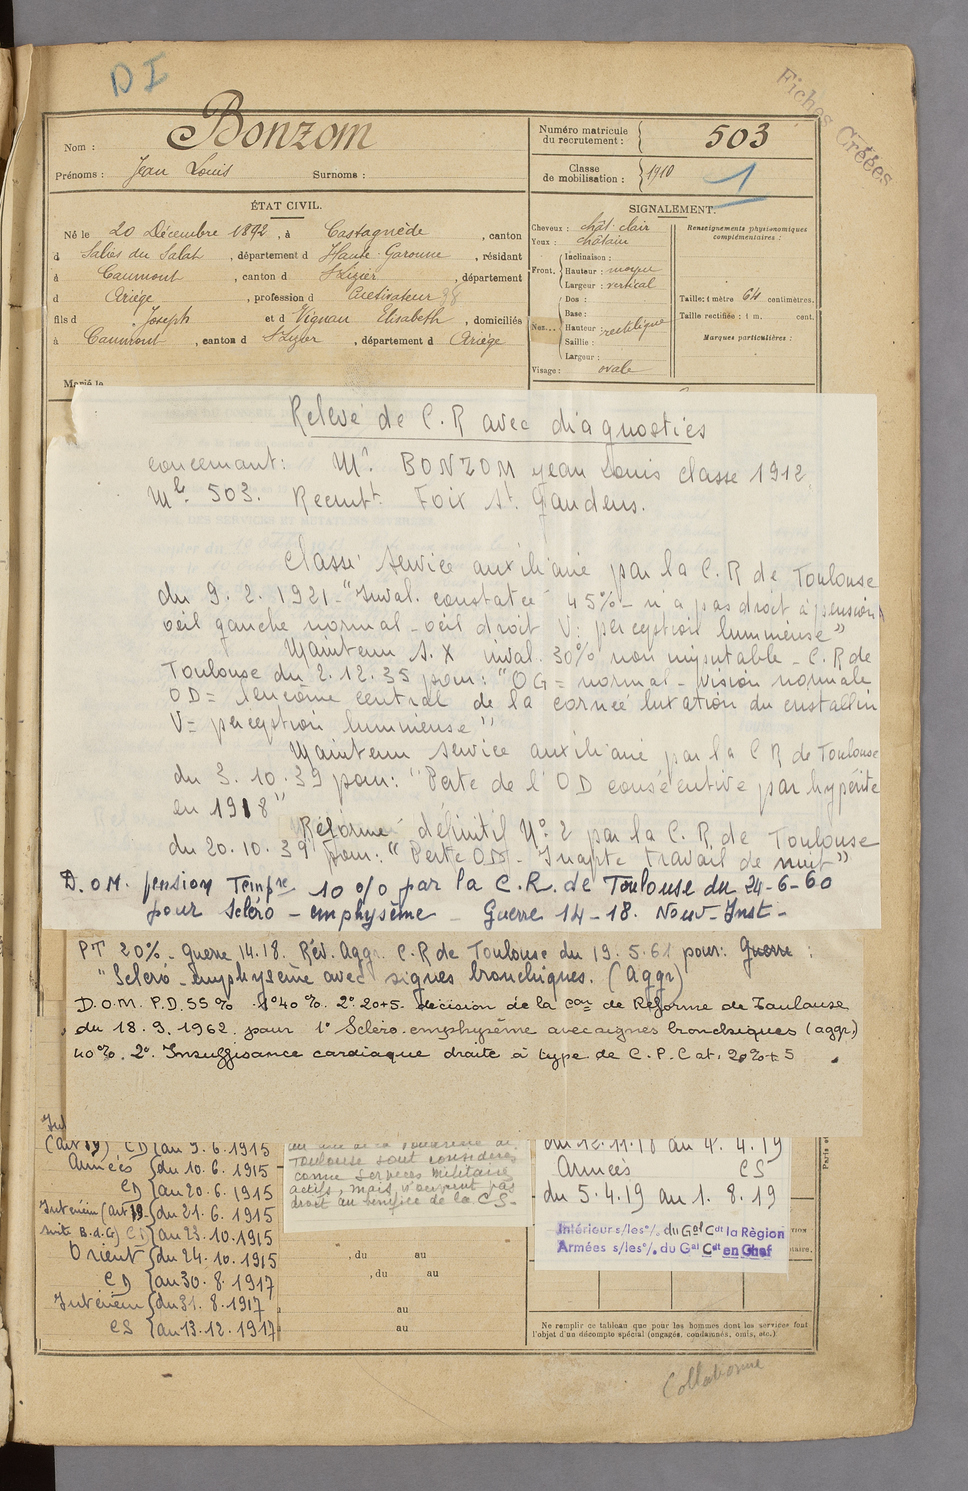 DI
Fiches Créées
Nom : Bonzom
Prénoms : Jean Louis Surnoms :
Numéro matricule du recrutement : 503
Classe de mobilisation : 1910
1
ÉTAT CIVIL.
Né le 20 Décembre 1892, à Castagnède, canton
d Salies du Salat, département d Haute Garonne, résidant
à Caumont, canton d St Lizier, département
d Ariège, profession d Cultivateur
fils d Joseph et d Vignau Elisabeth, domiciliés
à Caumont, canton d St Lizier, département d Ariège
Marié le
SIGNALEMENT.
Cheveux : chât. clair
Yeux : châtain
Front. Inclinaison :
Hauteur : moyen
Largeur : vertical
Nez... Dos :
Base :
Hauteur : rectiligne
Saillie :
Largeur :
Visage : ovale
Renseignements physionomiques complémentaires :
Taille : 1 mètre 64 centimètres.
Taille rectifiée : 1 m. cent.
Marques particulières :
Relevé de C.R avec diagnostics
concernant : Mr. BONZOM Jean Louis classe 1912.
Mle. 503. Recrutt. Foix St. Gaudens.
Classé service auxiliaire par la C.R de Toulouse
du 9.2.1921 - "Inval. constatée 45% - n'a pas droit à pension
oeil gauche normal - oeil droit V: perception lumineuse"
Maintenu S.X inval. 30% non imputable - C.R de
Toulouse du 2.12.35 pour : "OG = normal - vision normale
OD = leucôme central de la cornée luxation du cristallin
V = perception lumineuse"
Maintenu service auxiliaire par la C R de Toulouse
du 3.10.39 pour : "Perte de l'OD consécutive par hypérite
en 1918"
Réformé définitif No. 2 par la C.R. de Toulouse
du 20.10.39 pour : "Perte OD - Inapte travail de nuit"
D.OM. pension Tempre 10 % par la C.R. de Toulouse du 24-6-60
pour scléro - emphysème - Guerre 14-18. Nouv-Inst -
PT 20% - Guerre 14.18. Rév. Aggr. C.R de Toulouse du 19.5.61 pour : Guerre :
"Scléro-emphysème avec signes bronchiques. (Aggr)
D.O.M. P.D. 55% 1° 40%. 2° 20+5. décision de la Con de Réforme de Toulouse
du 18.9.1962. pour 1° Scléro-emphysème avec signes bronchiques (aggr.)
40%. 2° Insuffisance cardiaque droite à type de C.P.C at. 20%+5.
(art 19) CD au 9.6.1915
Armées du 10.6.1915
CD au 20.6.1915
Intérieur (art 19- du 21.6.1915
suite B.d.G) CD au 23.10.1915
Orient du 24.10.1915
CD au 30.8.1917
Intérieur du 31.8.1917
CS au 13.12.1917
de la Poudrerie de
Toulouse sont considérés
comme services militaires
actifs, mais n'ouvrent pas
droit au bénéfice de la CS -
, du au
, du au
au
au
du 12.11.18 au 4.4.19
Armées CS
du 5.4.19 au 1.8.19
Intérieur s/les o/. du Gal Cdt la Région
Armées s/les o/. du Gal Cdt en Chef
Ne remplir ce tableau que pour les hommes dont les services font
l'objet d'un décompte spécial (engagés, condamnés, omis, etc.)